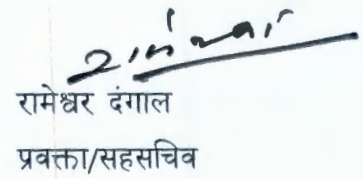 रामेश्वर दंगाल
प्रवक्ता/सहसचिव